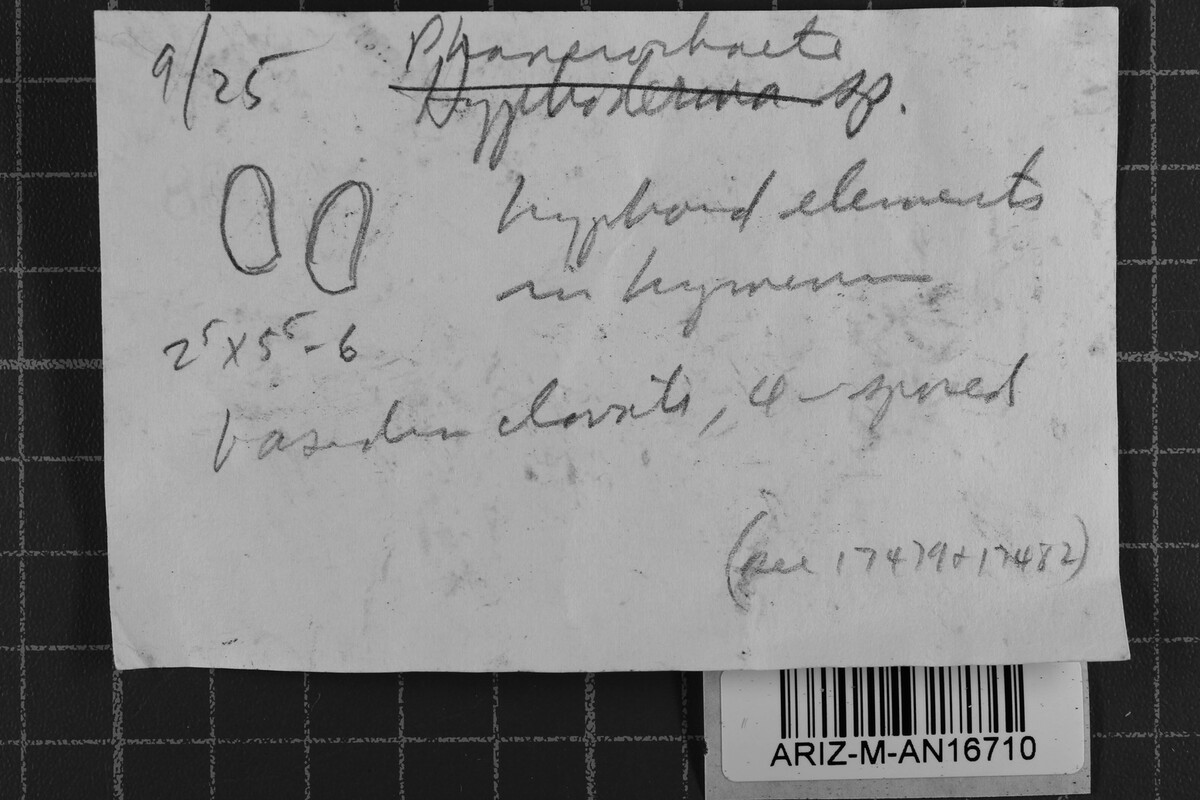 9/25
Phanerochaete
Hyphoderma sp.
hyphoid elements
in hymenium
2⁵ x 5⁵ - 6
basidia clavate, 4-spored
(see 17479 + 17482)
ARIZ-M-AN16710